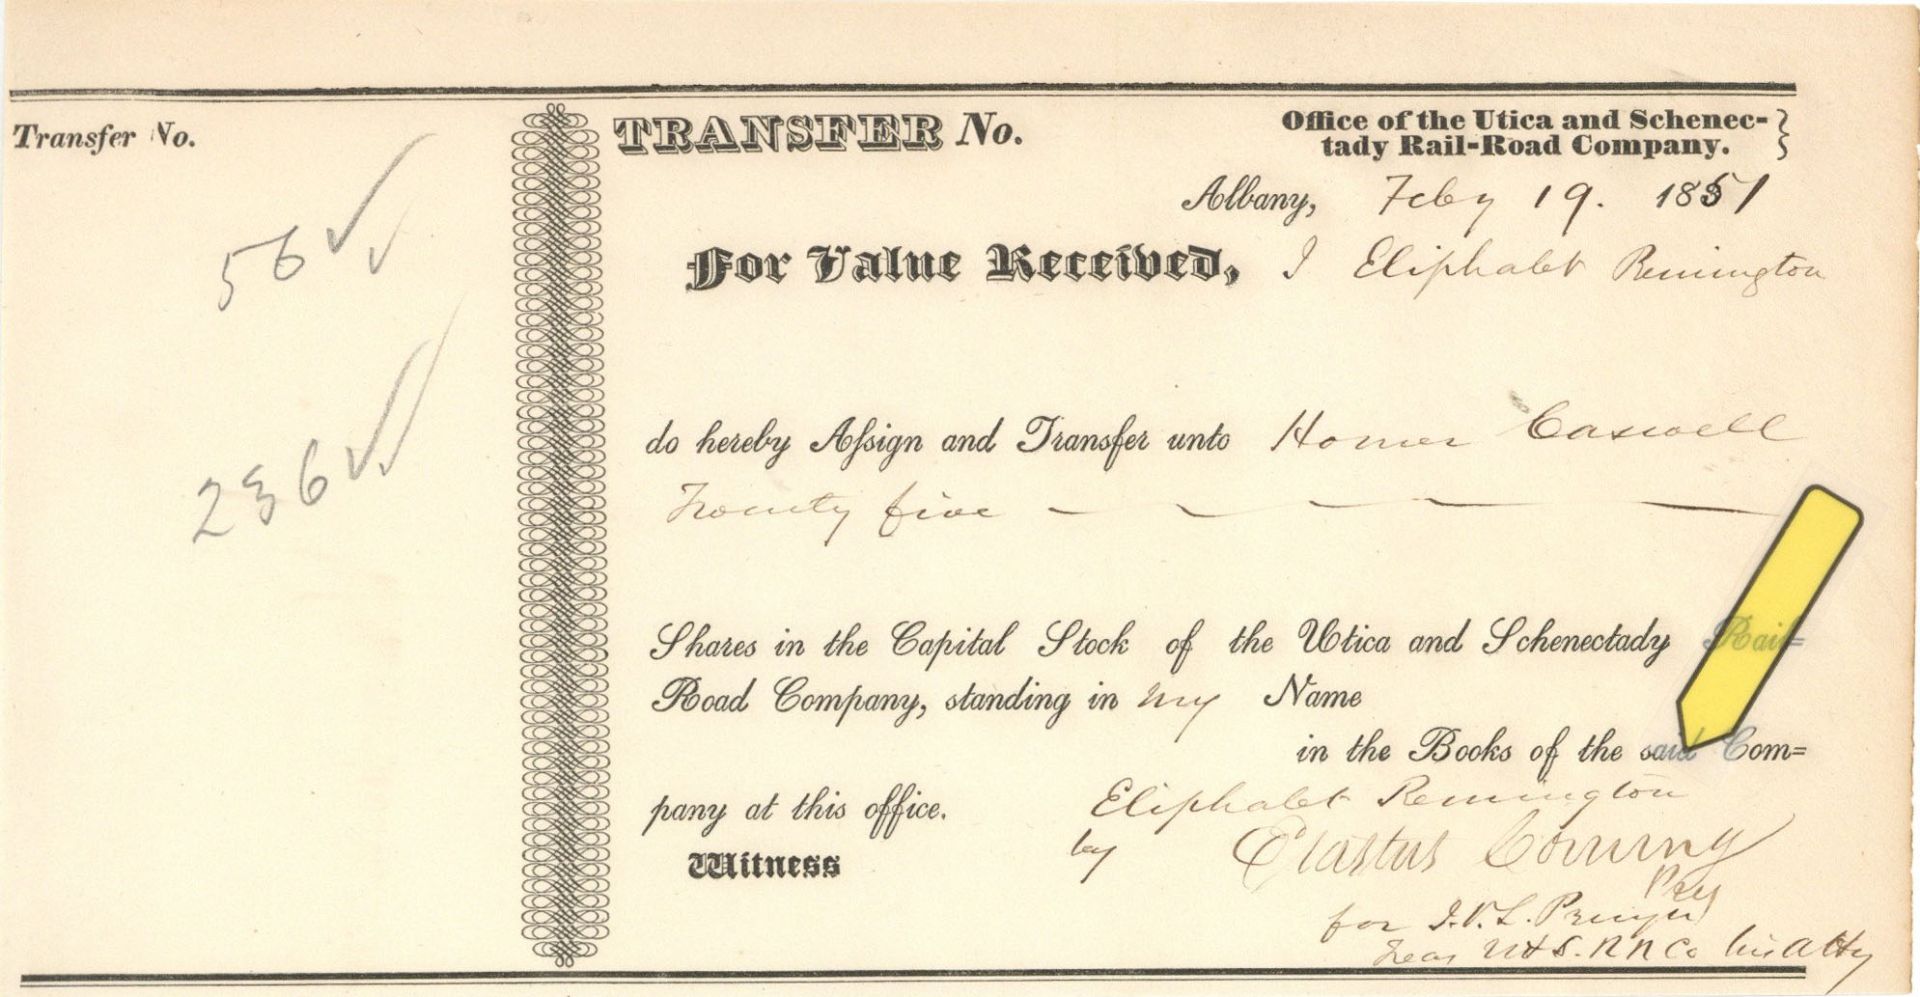 Transfer No.
56 ✓✓
236 ✓✓
TRANSFER No.
Office of the Utica and Schenec-
tady Rail-Road Company.
Albany, Feby 19. 1851
For Value Received, I Eliphalet Remington
do hereby Aſsign and Transfer unto Homer Caswell
Twenty five
Shares in the Capital Stock of the Utica and Schenectady Rail=
Road Company, standing in my Name
in the Books of the said Com=
pany at this office.
Eliphalet Remington
Witness
by Erastus Corning
Pres
for J. V. L. Pruyn
Treas U & S. R R Co his Atty